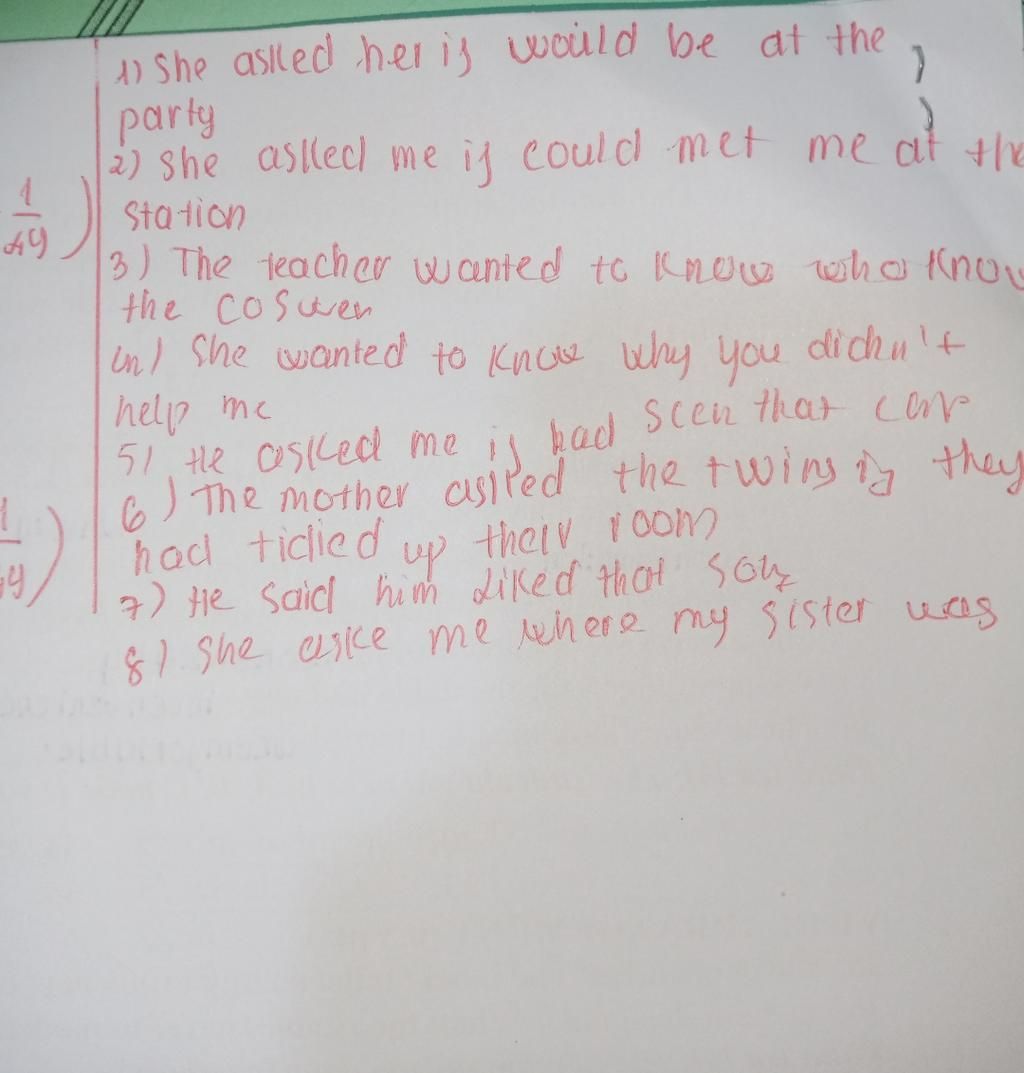 1) She asked her if would be at the
party
2) She asked me if could met me at the
station
3) The teacher wanted to know who know
the
4) She wanted to know why you didn't
help me
5) He asked me if had seen that car
6) The mother asked the twins if they
had tidied up their room
7) He said him liked that
8) She aske me where my sister was
1
1